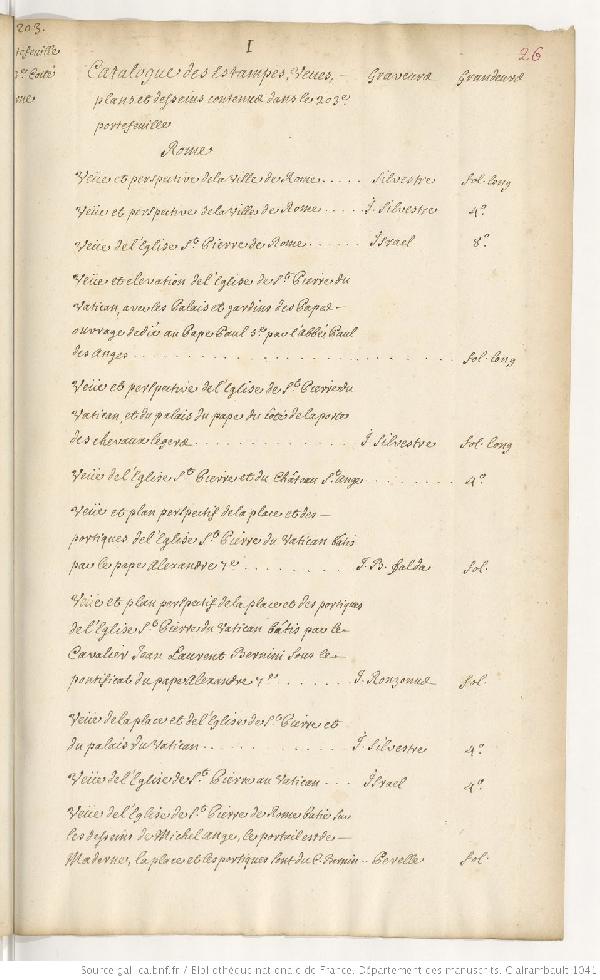 203.
I
26
Catalogue des Estampes, Veües, Graveurs Grandeurs
plans et desseins contenus dans le 203e
portefeuille
Rome
Veüe et perspective de la Ville de Rome..... Silvestre fol. long
Veüe et perspective de la Ville de Rome...... J. Silvestre 4º.
Veüe de l'Eglise St. Pierre de Rome...... Israel 8º.
Veüe et elevation de l'Eglise de St. Pierre du
Vatican, avec les Palais et jardins des Papes
ouvrage dedié au Pape Paul 5e. par l'abbé Paul
des Anges.......... fol. long
Veüe et perspective de l'Eglise de St. Pierre du
Vatican, et du palais du pape du coté de la porte
des chevaux legers.......... J. Silvestre fol. long
Veüe de l'Eglise St. Pierre et du Château St. Ange........ 4º.
Veüe et plan perspectif de la place et des
portiques de l'Eglise St. Pierre du Vatican bâtis
par le pape Alexandre 7e........ J. B. Falda fol.
Veüe et plan perspectif de la place et des portiques
de l'Eglise St. Pierre du Vatican bâtis par le
Cavalier Jean Laurent Bernini sous le
pontificat du pape Alexandre 7e....... J. fol.
Veüe de la place et de l'Eglise de St. Pierre et
du palais du Vatican.......... J. Silvestre 4º.
Veüe de l'Eglise de St. Pierre au Vatican.... Israel 4º.
Veüe de l'Eglise de St. Pierre de Rome batie sur
les desseins de Michel Ange, le portail est de
Maderne, la place et les portiques sont du C. Bernin.. Perelle fol.
Source gallica.bnf.fr / Bibliothèque nationale de France. Département des manuscrits. Clairambault 1041